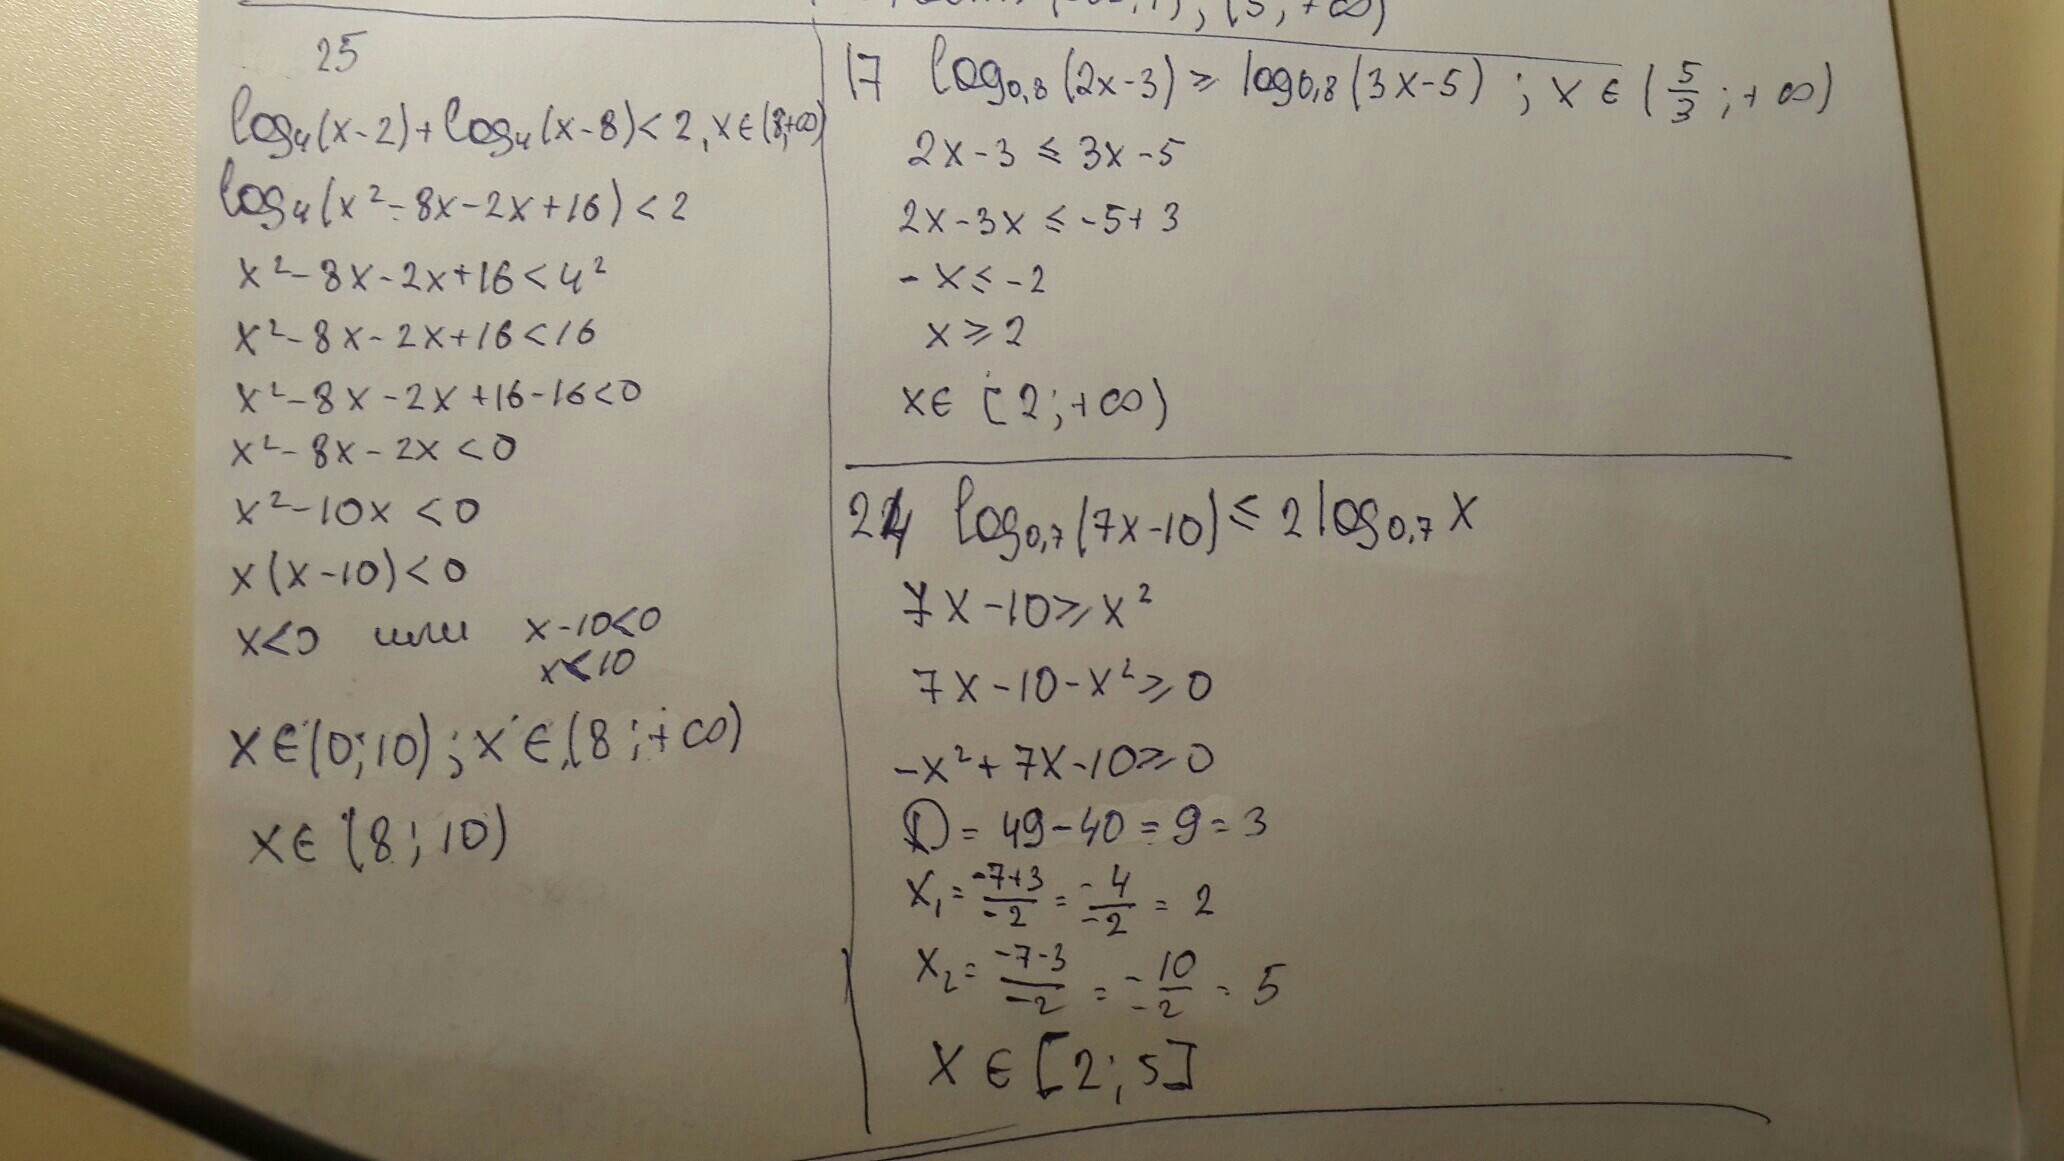 +∞)
25
log₄(x-2)+log₄(x-8)<2, x∈(8;+∞)
log₄(x²-8x-2x+16)<2
x²-8x-2x+16<4²
x²-8x-2x+16<16
x²-8x-2x+16-16<0
x²-8x-2x<0
x²-10x<0
x(x-10)<0
x<0 или x-10<0
x<10
x∈(0;10); x∈(8;+∞)
x∈(8;10)
17 log₀,₈(2x-3)≥log₀,₈(3x-5); x∈(5/3;+∞)
2x-3≤3x-5
2x-3x≤-5+3
-x≤-2
x≥2
x∈[2;+∞)
24 log₀,₇(7x-10)≤2log₀,₇x
7x-10≥x²
7x-10-x²≥0
-x²+7x-10≥0
D=49-40=9=3
x₁=(-7+3)/(-2)=(-4)/(-2)=2
x₂=(-7-3)/(-2)=(-10)/(-2)=5
x∈[2;5]